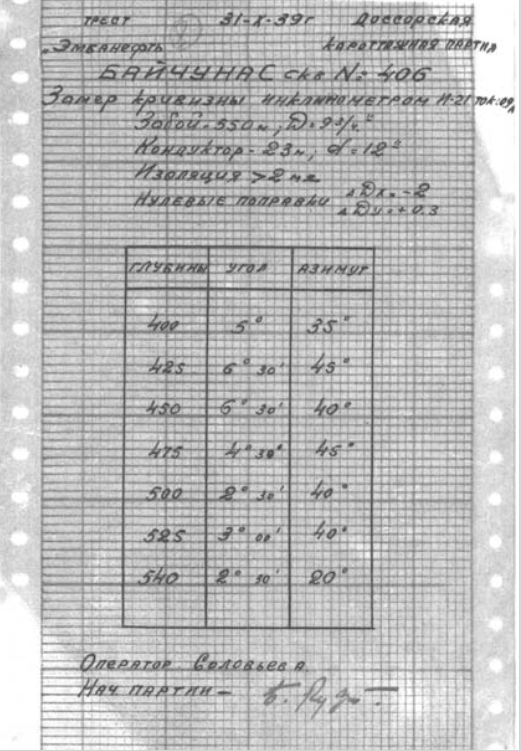 трест 31-X-39г Доссорская
"Эмбанефть короттажная партия
БАЙЧУНАС скв № 406
Замер кривизны инклинометром И-21 ток:09А
Забой-550м; D=9 3/4"
Кондуктор-23м; d=12"
Изоляция >2мг
Нулевые поправки ΔDx=-2
ΔDy=+0.3
ГЛУБИНЫ УГОЛ АЗИМУТ
400 5° 35°
425 6° 30' 45°
450 6° 30' 40°
475 4° 30' 45°
500 2° 30' 40°
525 3° 00' 40°
540 2° 30' 20°
Оператор Соловьева
Нач партии -